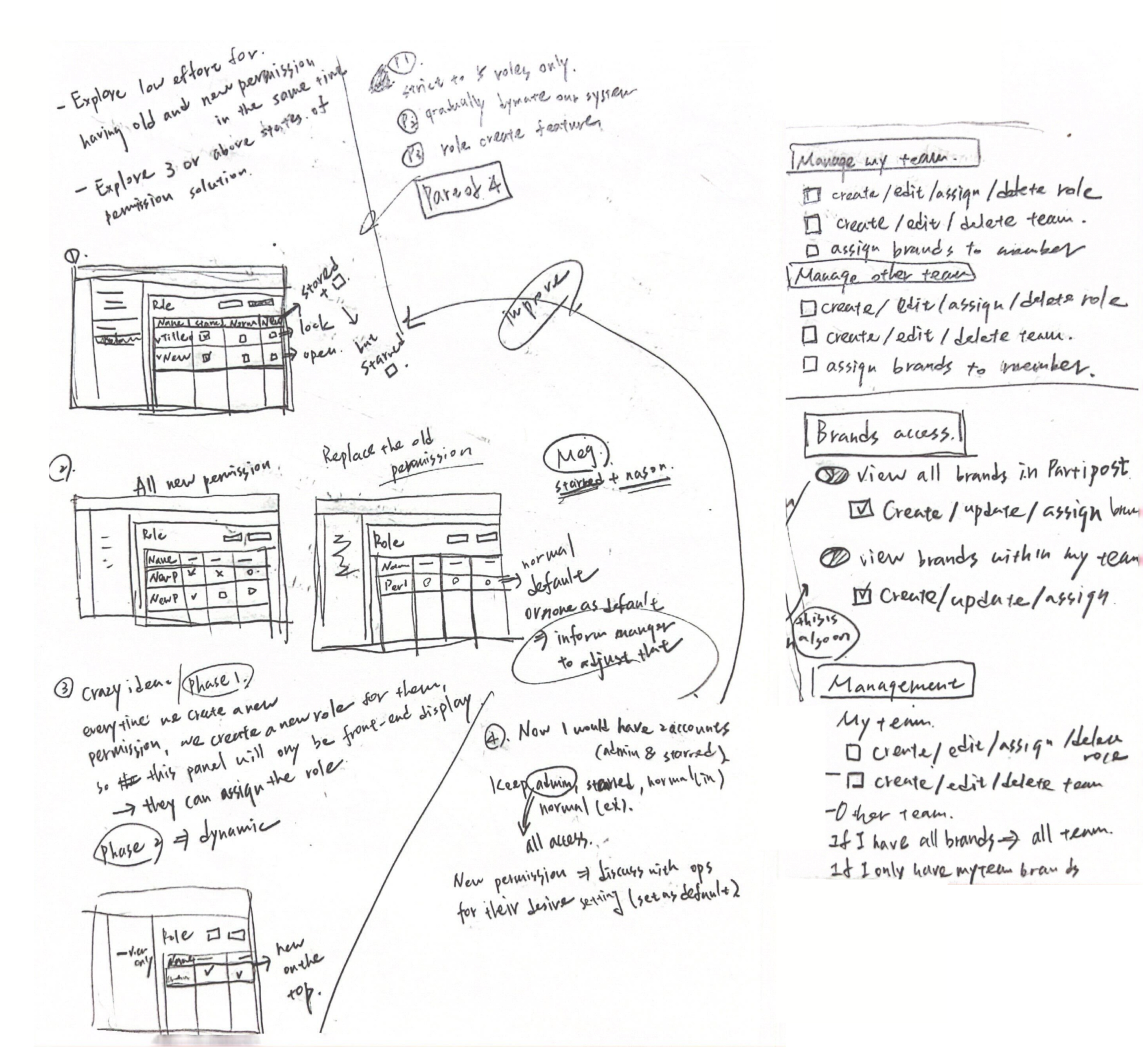 - Explore low effort for.
having old and new permission
in the same time
- Explore 3 or above states of
permission solution.
P1.
strict to 5 roles only.
P2 gradually our system
P3 role create feature
Part of 4
1.
Role
Name
New
stared
+ □.
lock
open.
but
starred
□.
improve
2.
All new permission.
Role
Name
NewP
NewP
Replace the old
permission
Role
Nam
Per1
Meg.
starred + nason.
normal
default
or none as default
⇒ inform manger
to adjust that
3 Crazy idea / Phase 1.
everytime we create a new
permission, we create a new role for them,
so this panel will ony be front-end display
→ they can assign the role.
Phase 2 ⇒ dynamic
view
only
Role
Name
new
on the
top.
4. Now I would have 2 accounts
(admin & starred)
Keep admin, starred, normal (in)
normal (ex).
all access.
New permission ⇒ discuss with ops
for their desire setting (set as default)
Manage my team.
□ create/edit/assign/delete role
□ create/edit/delete team.
□ assign brands to member
Manage other team
□ create/edit/assign/delete role
□ create/edit/delete team.
□ assign brands to member.
Brands access.
view all brands in Partipost
☑ Create/update/assign
view brands within my team
☑ Create/update/assign.
this is
also on
Management
My team.
□ create/edit/assign/delete
role
- □ create/edit/delete team
- Other team.
If I have all brands → all team.
If I only have my team brands